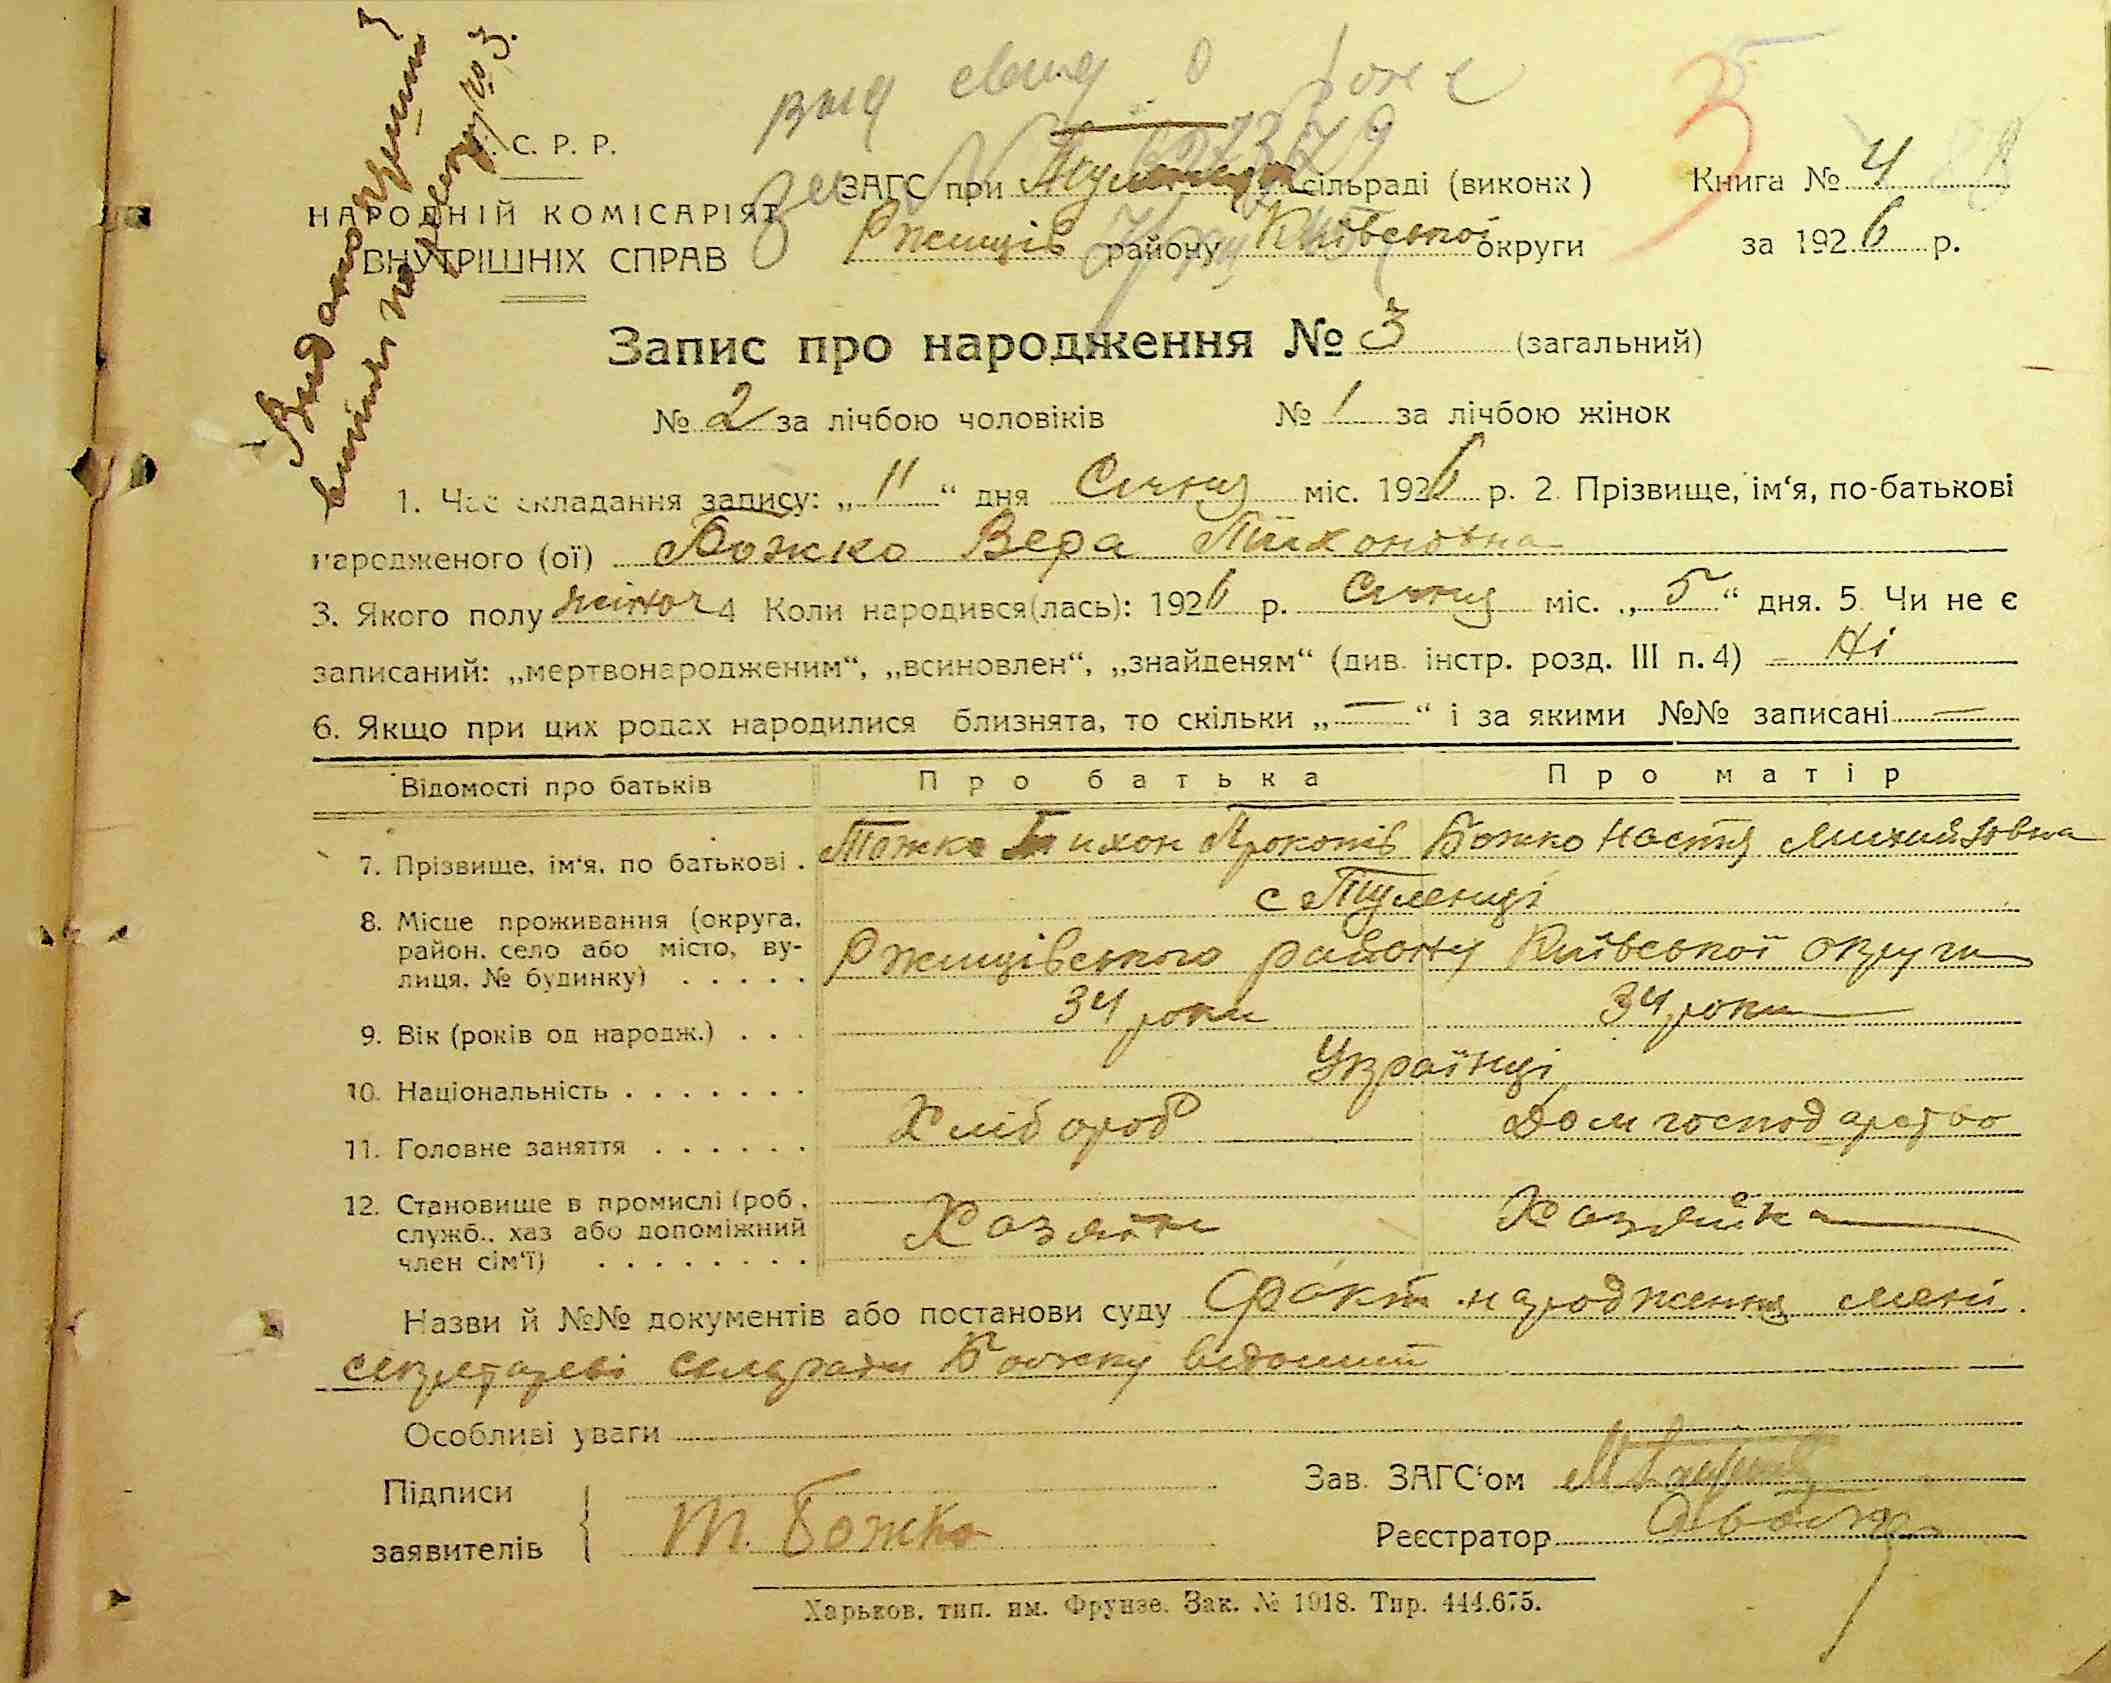 вид свид о рож
С. Р. Р.
ЗАГС при Тулинцях сільраді (виконк)
Книга № 4
НАРОДНІЙ КОМІСАРІЯТ
Ржищів району Київської округи
за 1926 р.
ВНУТРІШНІХ СПРАВ
Видано
Запис про народження № 3 (загальний)
№ 2 за лічбою чоловіків № 1 за лічбою жінок
1. Час складання запису: „11“ дня Січня міс. 1926 р. 2. Прізвище, ім‘я, по-батькові
народженого (ої) Божко Вера Тихоновна
3. Якого полу жіноч 4 Коли народився(лась): 1926 р. Січня міс. „5“ дня. 5 Чи не є
записаний: „мертвонародженим“, „всиновлен“, „знайденям“ (див. інстр. розд. III п. 4) Ні
6. Якщо при цих родах народилися близнята, то скільки „—“ і за якими №№ записані —
Відомості про батьків Про батька Про матір
7. Прізвище, ім‘я, по батькові . Божко Тихон Прокопів Божко Настя Михайловна
с Туленці
8. Місце проживання (округа, район, село або місто, ву-
лиця, № будинку) . . . . . Ржищівського району Київської округи
9. Вік (років од народж.) . . . 34 роки 34 роки
10. Національність . . . . . . . Українці
11. Головне заняття . . . . . . Хлібороб Домгосподарство
12. Становище в промислі (роб.,
служб., хаз або допоміжний Хазяїн Хазяйка
член сім‘ї) . . . . . . . .
Назви й №№ документів або постанови суду Факт народження мені
секретареві сельради Божку відомий
Особливі уваги
Підписи
Зав. ЗАГС‘ом
заявителів Т. Божко
Реєстратор
Харьков, тип. им. Фрунзе. Зак. № 1918. Тир. 444.675.